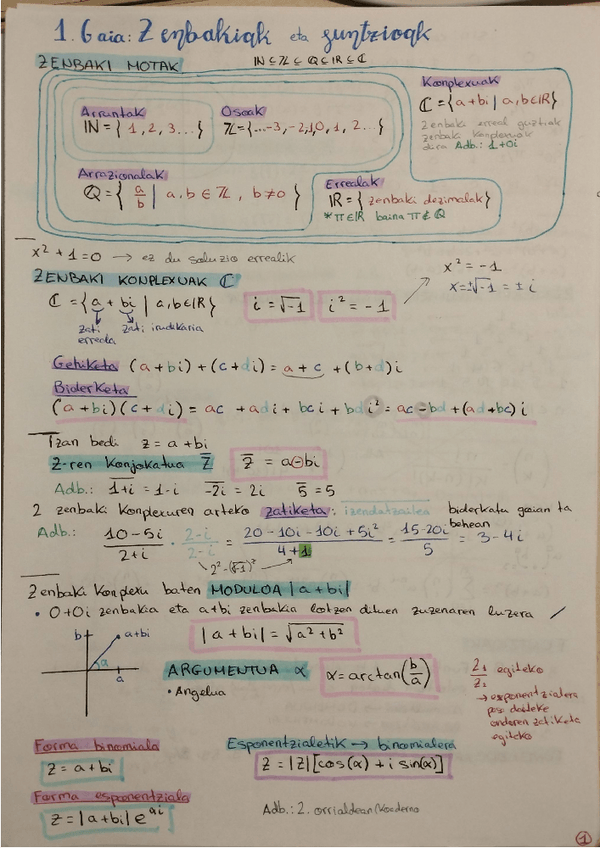 1. Gaia: Zenbakiak eta funtzioak
ZENBAKI MOTAK
ℕ ⊆ ℤ ⊆ ℚ ⊆ ℝ ⊆ ℂ
Arruntak
ℕ = { 1, 2, 3... }
Osoak
ℤ = {...-3, -2, 1, 0, 1, 2...}
Konplexuak
ℂ = {a+bi | a,b∈ℝ}
Zenbaki erreal guztiak
zenbaki konplexuak
dira Adb.: 1+0i
Arrazionalak
ℚ = { a/b | a,b ∈ ℤ, b≠0 }
Errealak
ℝ = { zenbaki dezimalak }
* π∈ℝ baina π∉ℚ
x² + 1 = 0 → ez du soluzio errealik
x² = -1
x = ±√-1 = ± i
ZENBAKI KONPLEXUAK ℂ
ℂ = {a + bi | a,b∈ℝ}
i = √-1
i² = -1
zati erreala
zati irudikaria
Gehiketa (a+bi) + (c+di) = a + c + (b+d)i
Biderketa
(a+bi)(c+di) = ac + adi + bci + bdi² = ac - bd + (ad+bc) i
Izan bedi z = a + bi
z-ren konjokatua z̅
z̅ = a-bi
Adb.: 1+i̅ = 1-i -2i̅ = 2i 5̅ = 5
2 zenbaki konplexuren arteko zatiketa: izendatzailea biderkatu goian ta behean
Adb.: (10-5i)/(2+i) · (2-i)/(2-i) = (20-10i-10i+5i²)/(4+1) = (15-20i)/5 = 3-4i
2²-(√-1)²
Zenbaki konplexu baten MODULOA |a+bi|
• 0+0i zenbakia eta a+bi zenbakia lotzen dituen zuzenaren luzera
|a+bi| = √(a²+b²)
b a+bi
α
a
ARGUMENTUA α
α = arctan(b/a)
• Angelua
z₁/z₂ egiteko
→ esponentzialera
pasa daiteke
ondoren zatiketa
egiteko
Forma binomiala
z = a+bi
Esponentzialetik → binomialera
z = |z| [cos(α) + i sin(α)]
Forma esponentziala
z = |a+bi| e^αi
Adb.: 2. orrialdean
1